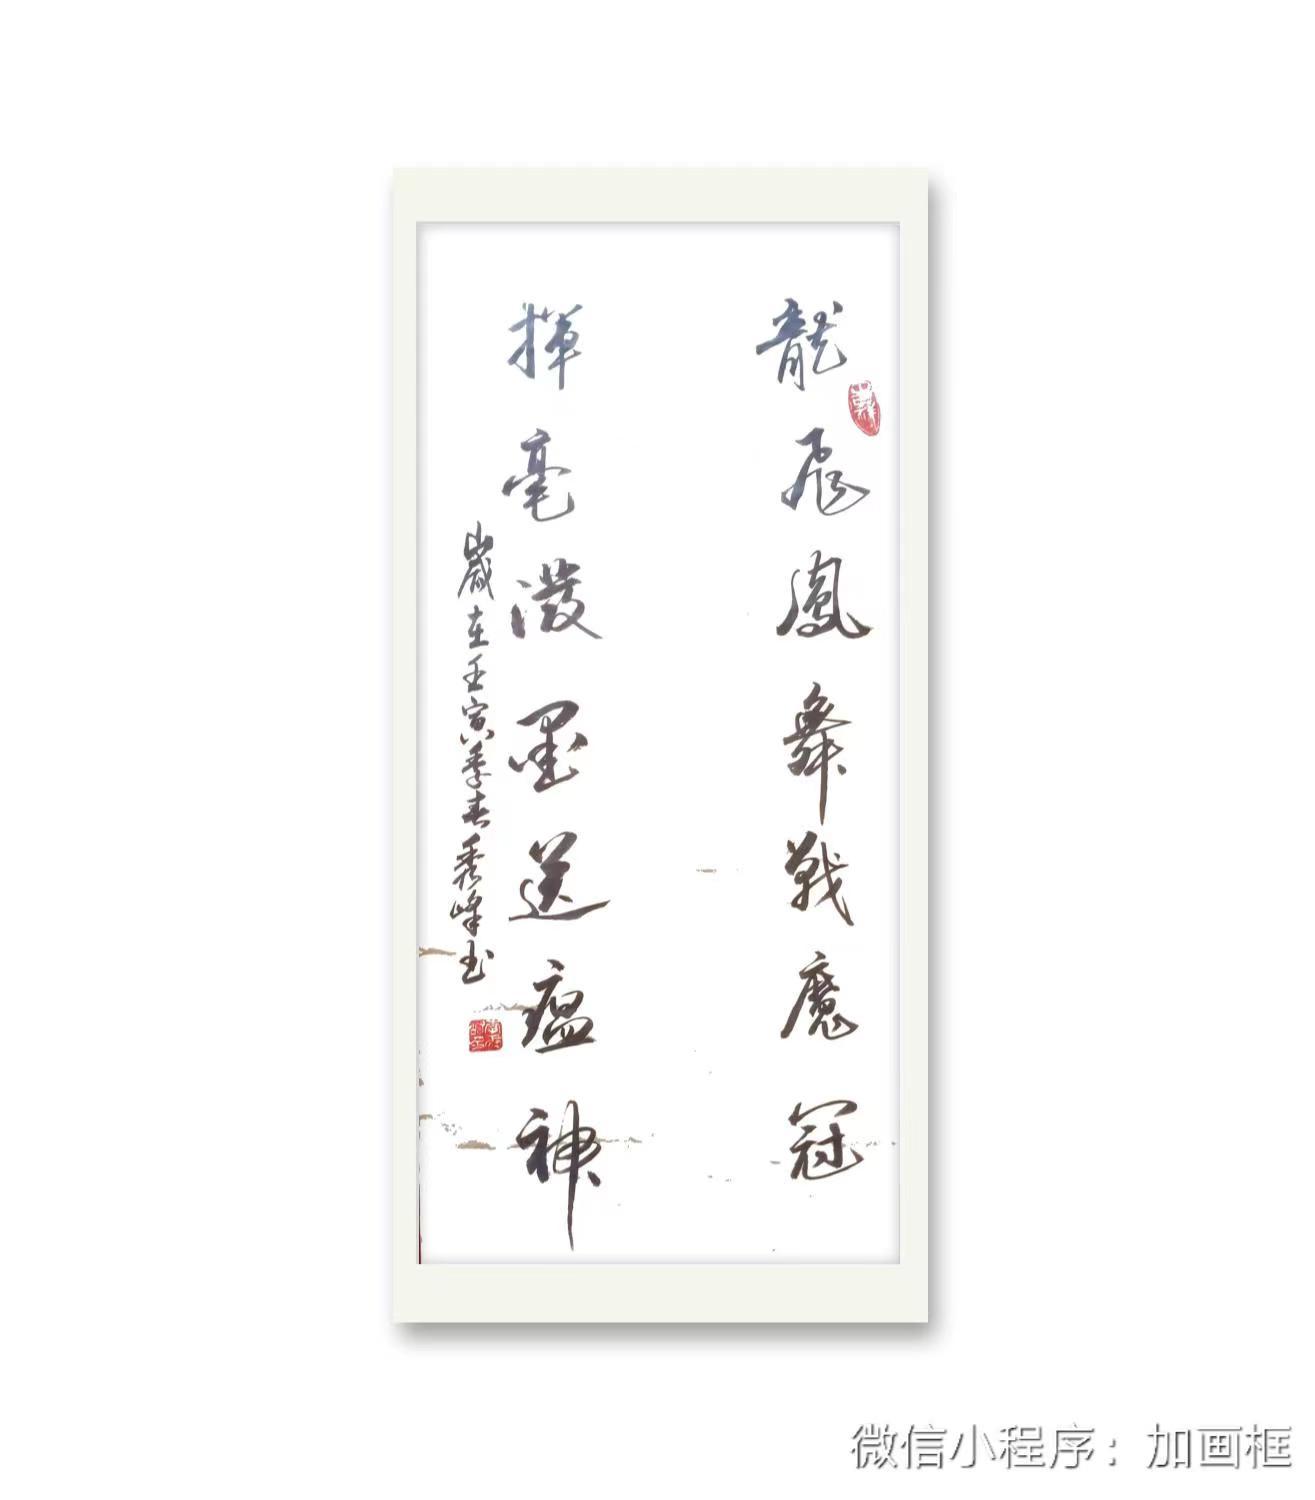 龍飛鳳舞戰魔冠
揮毫潑墨送瘟神
歲在壬寅季春秀峰书
微信小程序：加画框